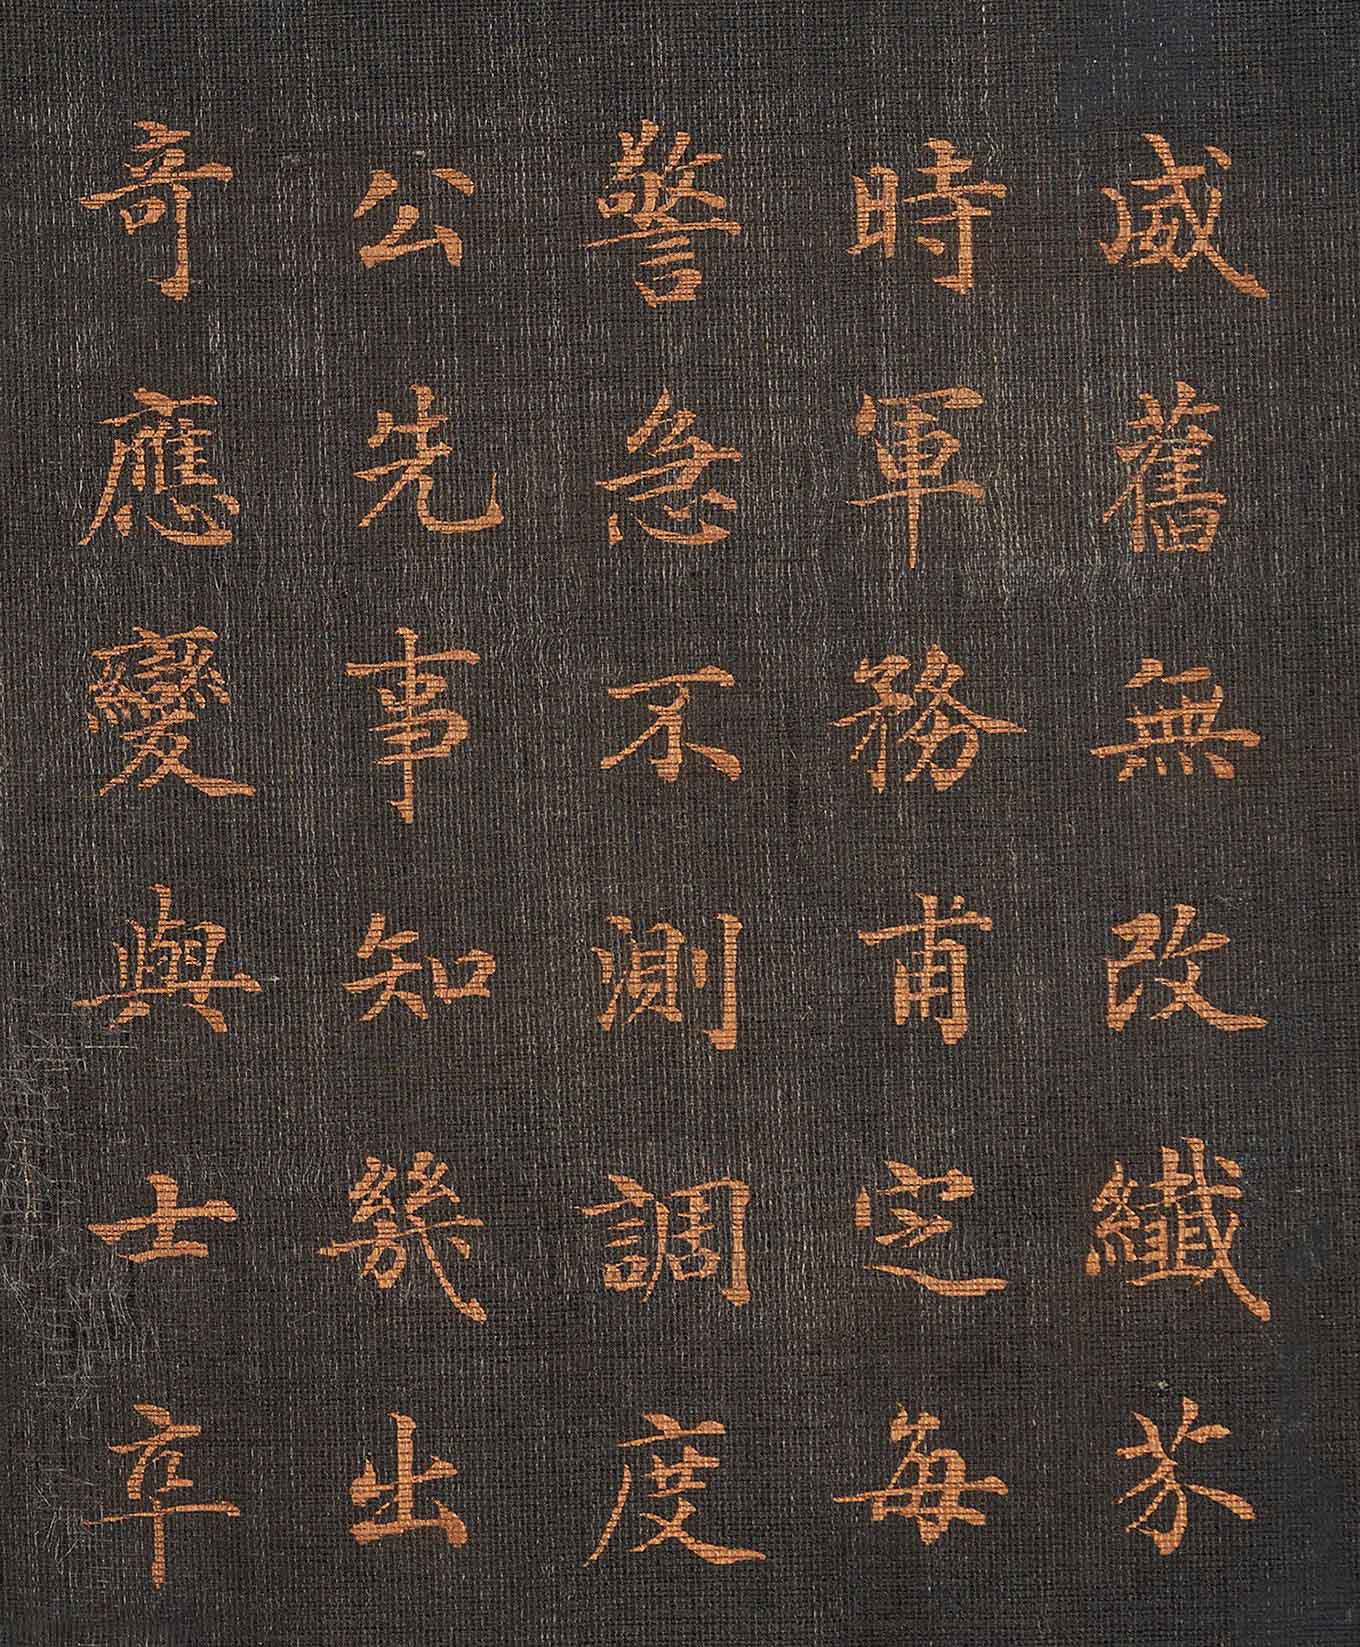 威舊無改纖芥
時軍務甫定每
警急不測調度
公先事知幾出
奇應變與士卒